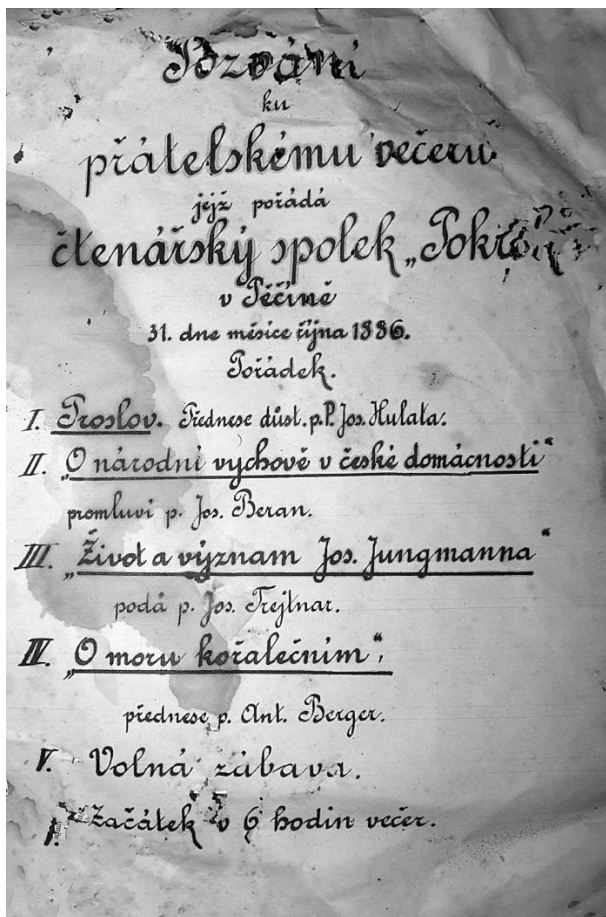 Pozvání
ku
přátelskému večeru
jejž pořádá
čtenářský spolek „Pokrok“
v Pěčíně
31. dne měsíce října 1886.
Pořádek.
I. Proslov. Přednese důst. p. P. Jos. Hulata.
II. „O národní vychově v české domácnosti“
promluví p. Jos. Beran.
III. „Život a význam Jos. Jungmanna“
podá p. Jos. Trejtnar.
IV. „O moru kořalečním“,
přednese p. Ant. Berger.
V. Volná zábava.
Začátek v 6 hodin večer.